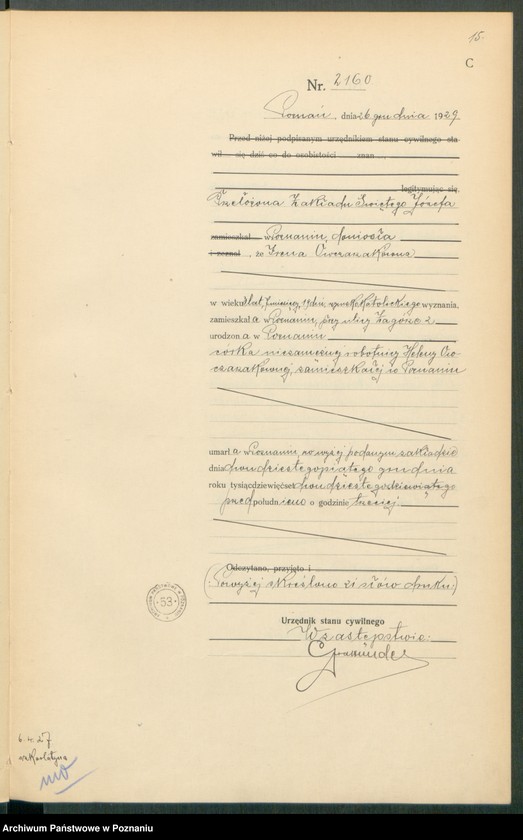 15.
C
Nr. 2160
Poznań, dnia 26 grudnia 1929
Przed niżej podpisanym urzędnikiem stanu cywilnego sta
wił się dziś co do osobistości znan
legitymując się
Przełożona Zakładu Świętego Józefa
zamieszkał w Poznaniu, doniosła
i zeznał, że Irena Owczarzakówna
w wieku lat, miesięcy, 19 dni, rzymskokatolickiego wyznania,
zamieszkała w Poznaniu, przy ulicy Zagórze 2
urodzona w Poznaniu
córka niezamężnej robotnicy Heleny Ow-
czarzakównej, zamieszkałej w Poznaniu
umarła w Poznaniu, w wyżej podanym zakładzie
dnia dwudziestego piątego grudnia
roku tysiąc dziewięćset dwudziestego dziewiątego
przed południem o godzinie trzeciej.
Odczytano, przyjęto i
(Powyżej skreślono 21 słów druku.)
Urzędnik stanu cywilnego
W zastępstwie:
53
6.4.27
Archiwum Państwowe w Poznaniu